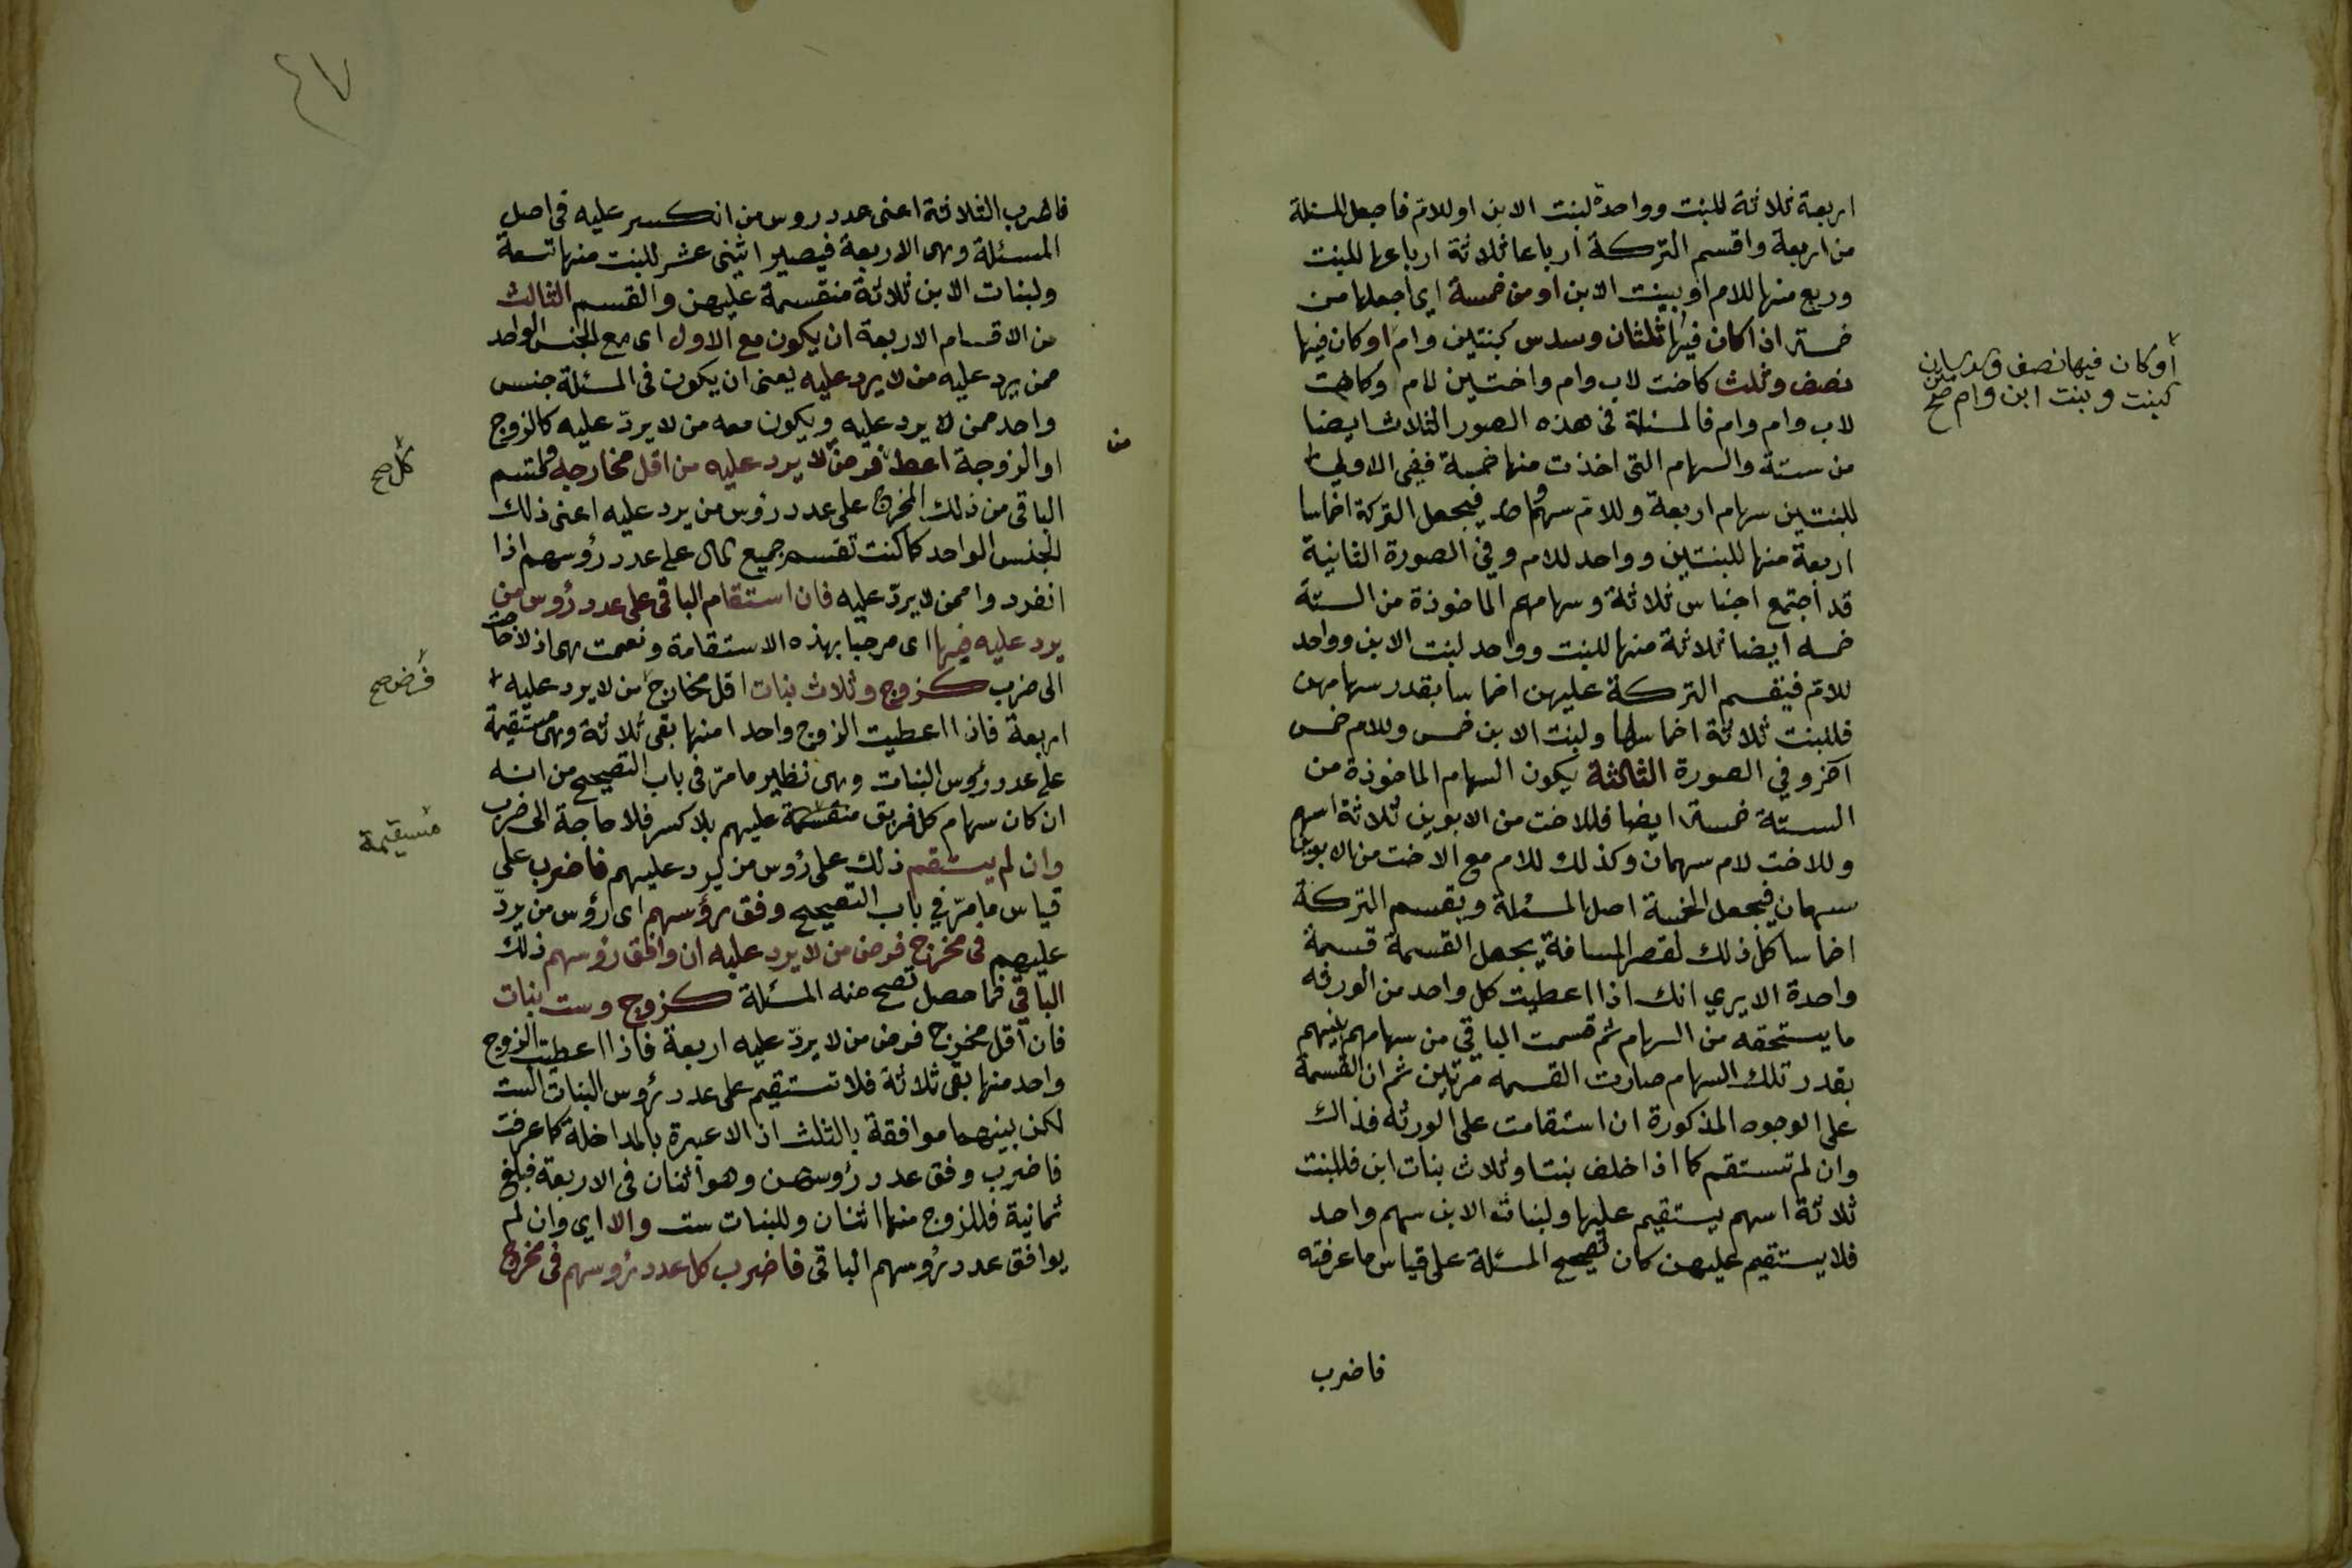 اربعة ثلاثة للبنت وواحدة لبنت الابن اوللامّ فاجعل المسئلة
من اربعة واقسم التركة ارباعا ثلاثة ارباعها للبنت
وربع منها للام او لبنت الابن او من خمسة اي اجعلها من
خمسة اذا كان فيها ثلثان وسدس كبنتين وام او كان فيها
نصف وثلث كاخت لاب وام واختين لام او كاخت
لاب وام وام فالمسئلة فى هذه الصور الثلاث ايضا
من ستة والسهام التى اخذت منها خمسة ففى الاولى
للبنتين سهام اربعة وللام سهم واحد فيجعل التركة اخماسا
اربعة منها للبنتين وواحد للام وفي الصورة الثانية
قد اجتمع اجناس ثلاثة وسهامهم الماخوذة من الستة
خمسه ايضا ثلاثة منها للبنت وواحد لبنت الابن وواحد
للامّ فيقسم التركة عليهن اخماسا بقدر سهامهن
فللبنت ثلاثة اخماسها ولبنت الابن خمس وللام خمس
آخر وفي الصورة الثالثة يكون السهام الماخوذة من
الستة خمسة ايضا فللاخت من الابوين ثلاثة اسهم
وللاخت لام سهمان وكذلك للام مع الاخت من الابوين
سهمان فيجعل الخمسة اصل المسئلة ويقسم التركة
اخماسا كل ذلك لقصر المسافة بجعل القسمة قسمة
واحدة الا يري انك اذا اعطيت كل واحد من الورثه
ما يستحقه من السهام ثم قسمت الباقي من سهامهم بينهم
بقدر تلك السهام صارت القسمه مرتين ثم ان القسمة
على الوجوه المذكورة ان استقامت على الورثه فذاك
وان لم تستقم كما اذا خلف بنتا وثلاث بنات ابن فللبنت
ثلاثة اسهم يستقيم عليها ولبنات الابن سهم واحد
فلا يستقيم عليهن كان تصحيح المسئلة على قياس ما عرفته
فاضرب
أو كان فيها نصف وسدسان
كبنت وبنت ابن وام صح
٤٧
فاضرب الثلاثة اعنى عدد روس من انكسر عليه فى اصل
المسئلة وهى الاربعة فيصير اثنى عشر للبنت منها تسعة
ولبنات الابن ثلاثة منقسمة عليهن والقسم الثالث
من الاقسام الاربعة ان يكون مع الاول اى مع الجنس الواحد
ممن يرد عليه من لا يرد عليه يعنى ان يكون فى المسئلة جنس
واحد ممن لا يرد عليه ويكون معه من لا يردّ عليه كالزوج
او الزوجة اعط فرض لا يرد عليه من اقل مخارجه فلتقسم
من
الباقى من ذلك المخرج على عدد رؤس من يرد عليه اعنى ذلك
الجنس الواحد كما كنت تقسم جميع المال على عدد رؤسهم اذا
انفردوا ممن لا يردّ عليه فان استقام الباقى على عدد رؤس من
يرد عليه فبها اى مرحبا بهذه الاستقامة ونعمت هى اذ لا حاجت
الى ضرب كزوج وثلاث بنات اقل مخارج من لا يرد عليه
اربعة فاذا اعطيت الزوج واحدا منها بقى ثلاثة وهى مستقيمة
على عدد رؤس البنات وهى نظير ما مرّ فى باب التصحيح من انه
ان كان سهام كل فريق منقسمة عليهم بلا كسر فلا حاجة الى ضرب
وان لم يستقم ذلك على رؤس من يرد عليهم فاضرب على
قياس ما مرّ في باب التصحيح وفق رؤسهم اى رؤس من يردّ
عليهم فى مخرج فرض من لا يرد عليه ان وافق رؤسهم ذلك
الباقي فما حصل تصح منه المسئلة كزوج وست بنات
فان اقل مخرج فرض من لا يردّ عليه اربعة فاذا اعطيت الزوج
واحد منها بقى ثلاثة فلا تستقيم على عدد رؤس البنات الست
لكن بينهما موافقة بالثلث اذ لا عبرة بالمداخلة كما عرفت
فاضرب وفق عدد رؤسهن وهو اثنان فى الاربعة فبلغ
ثمانية فللزوج منها اثنان وللبنات ست والا اي وان لم
يوافق عدد رؤسهم الباقى فاضرب كل عدد رؤسهم فى مخرج
كل صح
فرض صح
مستقيمة